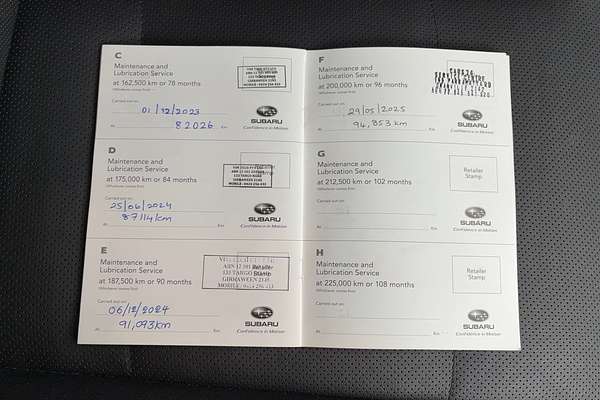 C
Maintenance and
Lubrication Service
at 162,500 km or 78 months
(Whichever comes first)
Carried out on:
01/12/2023
At 82026 Km
SUBARU
Confidence in Motion
D
Maintenance and
Lubrication Service
at 175,000 km or 84 months
(Whichever comes first)
Carried out on:
25/06/2024
87114km
SUBARU
Confidence in Motion
E
Maintenance and
Lubrication Service
at 187,500 km or 90 months
(Whichever comes first)
Retailer
Stamp
GIRRAWEEN 2145
Carried out on:
06/12/2024
At 91,093km
SUBARU
Confidence in Motion
F
Maintenance and
Lubrication Service
at 200,000 km or 96 months
(Whichever comes first)
Carried out on:
29/05/2025
At 94,853 km
SUBARU
Confidence in Motion
G
Maintenance and
Lubrication Service
at 212,500 km or 102 months
(Whichever comes first)
Retailer
Stamp
Carried out on:
At Km
SUBARU
Confidence in Motion
H
Maintenance and
Lubrication Service
at 225,000 km or 108 months
(Whichever comes first)
Retailer
Stamp
Carried out on:
At Km
SUBARU
Confidence in Motion